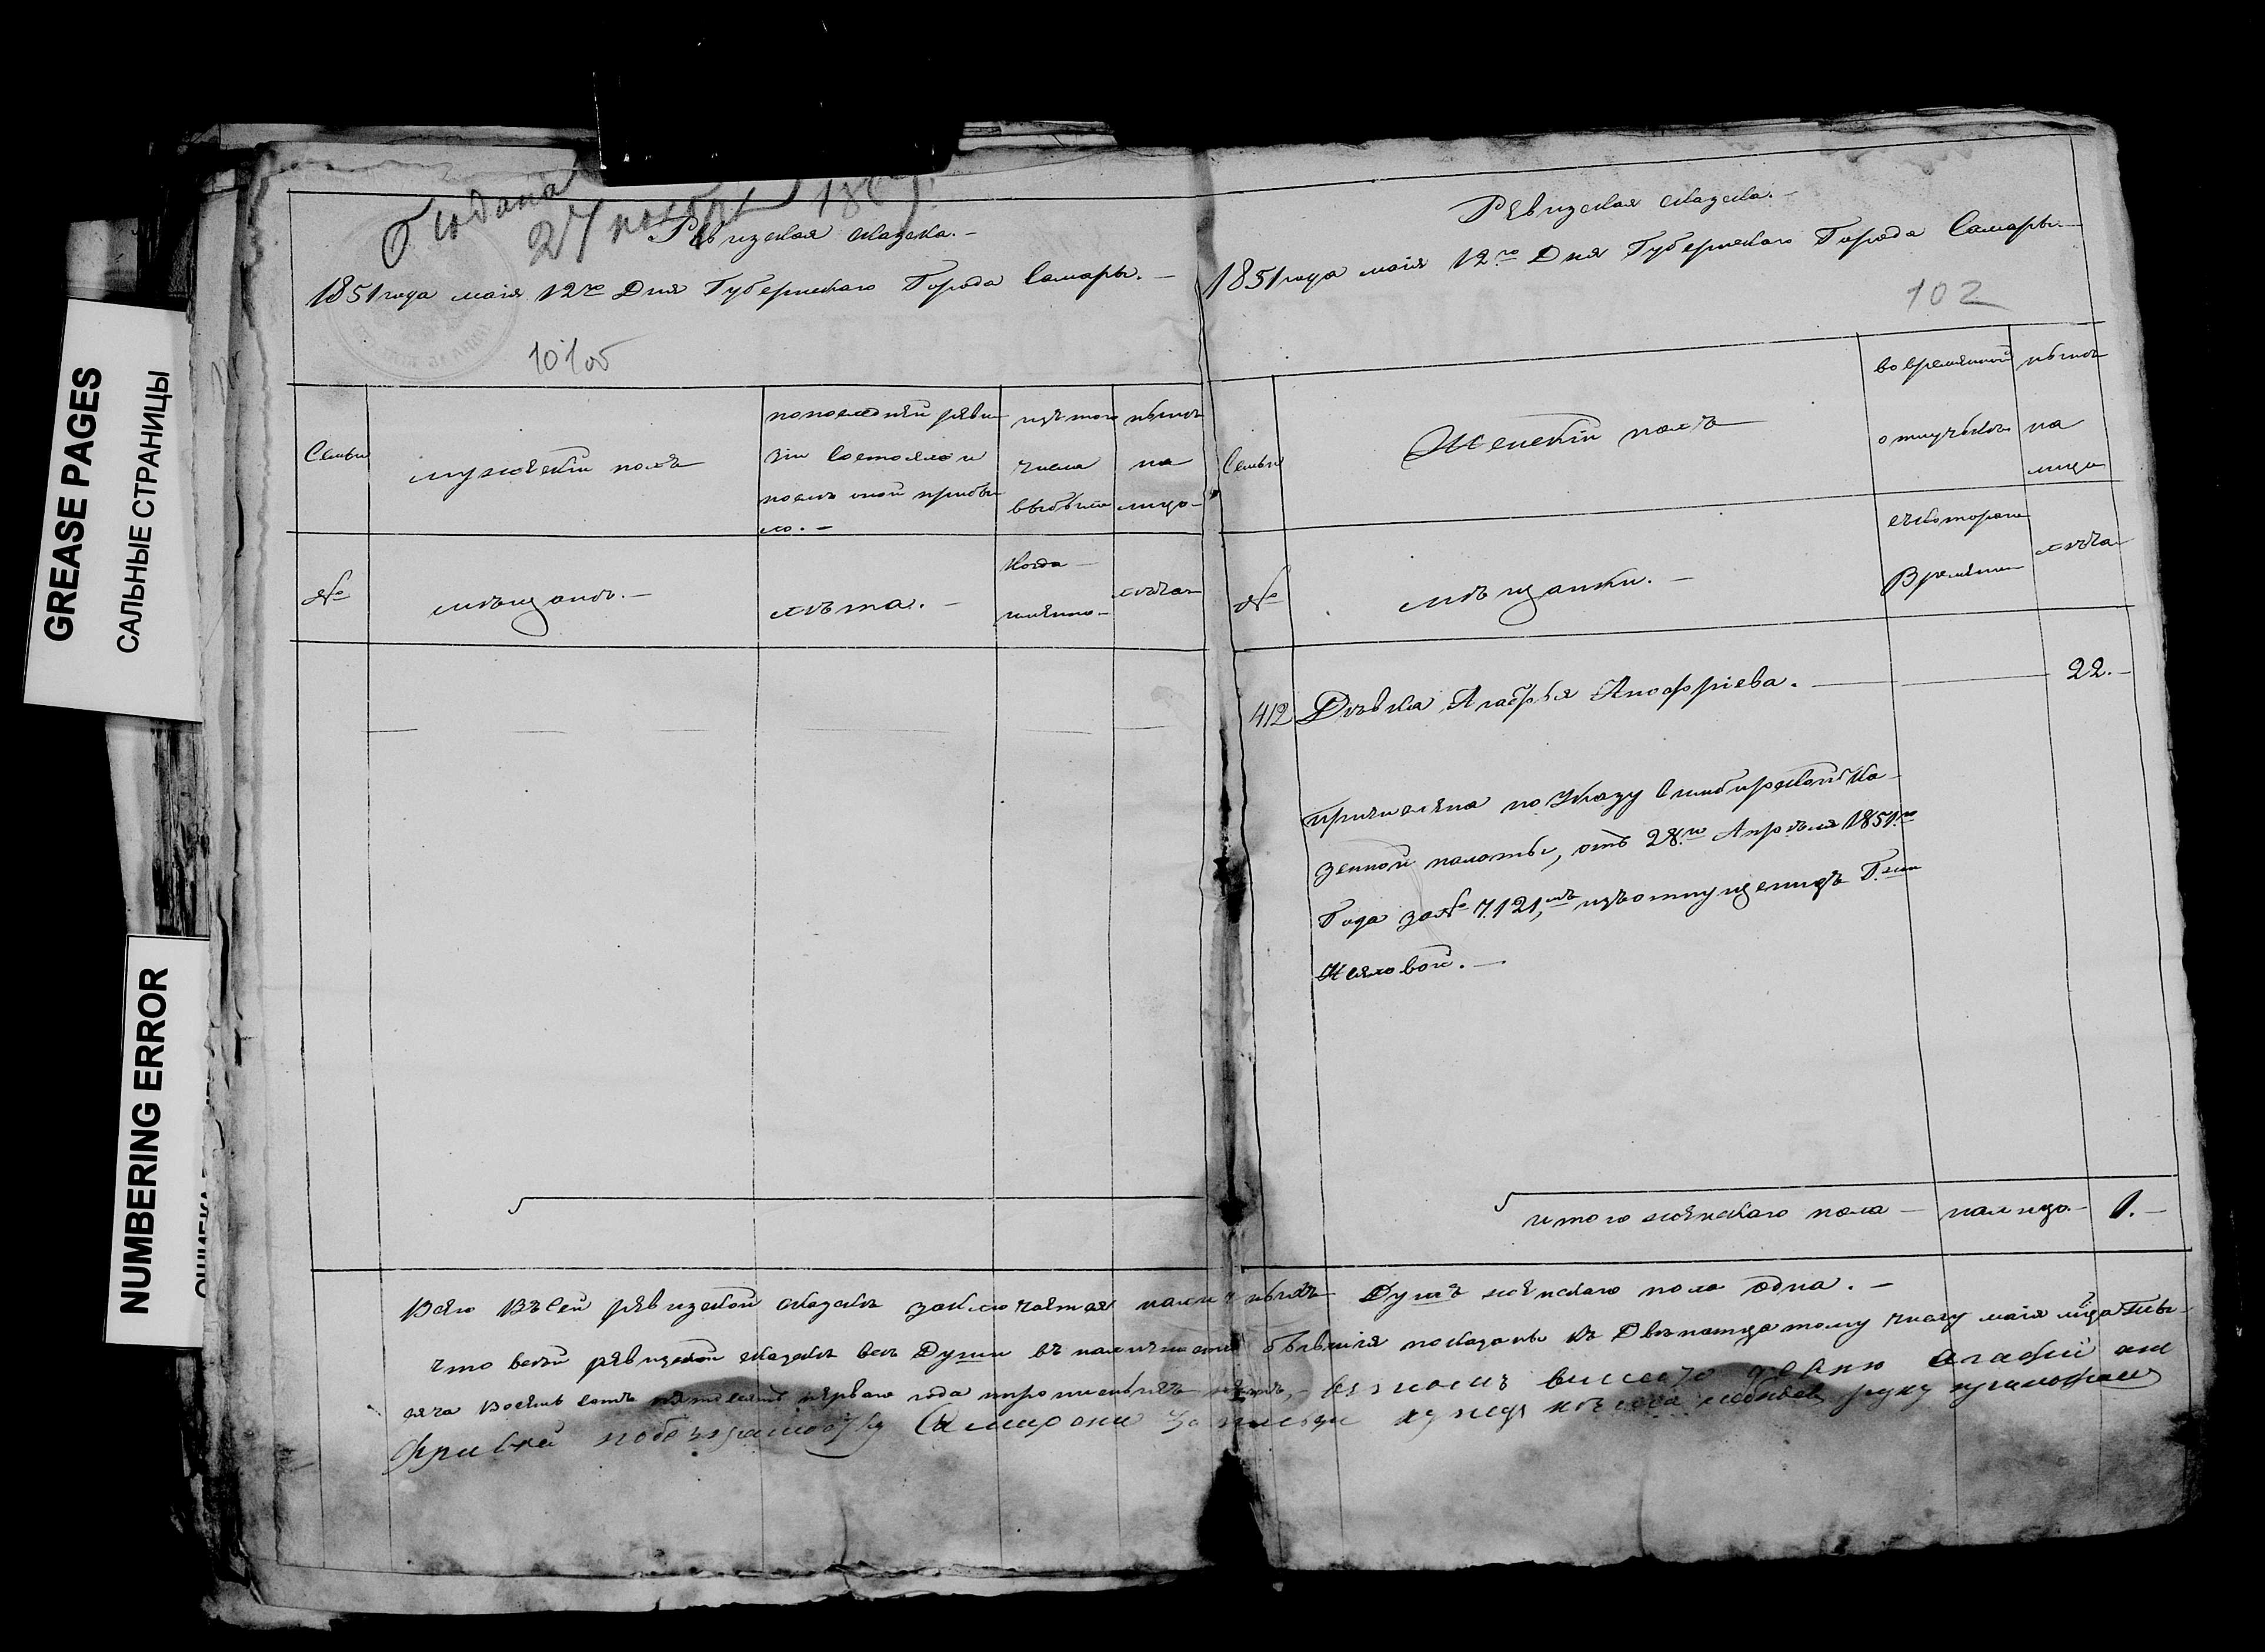 GREASE PAGES
САЛЬНЫЕ СТРАНИЦЫ
NUMBERING ERROR
Подана
27
Ревизская сказка.
1851 года маія 12го Дня Губернскаго Города Самары.
101об
Семьи
мужескій полъ
по последней реви
зіи состояло и
после оной прибы
ло.
изъ того
числа
выбыли
ныне
на
лицо
№
мѣщане.
лѣта.
Когда
имянно
лѣта
Ревизская сказка.
1851 года маія 12го Дня Губернскаго Города Самары.
102
Семьи
Женскій полъ
во временной
отлучке
ныне
на
лицо
№
мѣщанки.
съ котораго
Времяни
лѣта
412 Дѣвка Агафья Анофріева. 22.
причислена по Указу Симбирской Ка
зенной палаты, отъ 28го Апрѣля 1851го
Года за № 7.121, изъ отпущенницъ Г.жи
итого женскаго пола налицо 1.
Всего Въ сей ревизской сказке заключается наличныхъ Душъ женскаго пола одна.
что въ сей ревизской сказке все Души въ наличности бывшія показаны къ Двенадцатому числу маія месяца Тысе
ча восемь сотъ пятьдесятъ перваго года
руку приложилъ